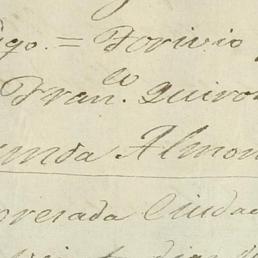 igo. = Torivio
Fran.co Quiros
unda Almon
oresada Ciudad